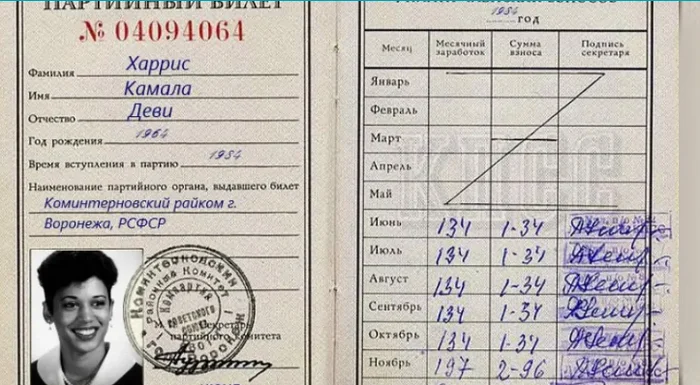 ПАРТИЙНЫЙ БИЛЕТ
№ 04094064
Фамилия Харрис
Имя Камала
Отчество Деви
Год рождения 1964
Время вступления в партию 1984
Наименование партийного органа, выдавшего билет
Коминтерновский райком г.
Воронежа, РСФСР
Секретарь
партийного комитета
1984 год
Месяц Месячный заработок Сумма взноса Подпись секретаря
КПСС
Январь
Февраль
Март
Апрель
Май
Июнь 134 1-34
Июль 134 1-34
Август 134 1-34
Сентябрь 134 1-34
Октябрь 134 1-34
Ноябрь 197 2-96